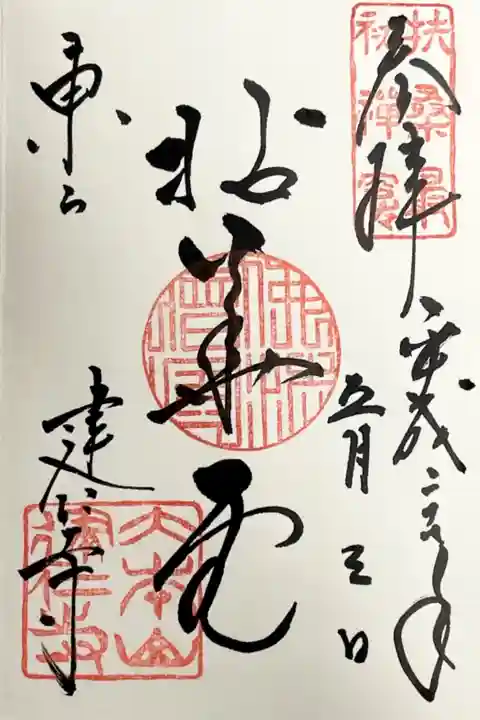 扶桑最
初禅窟
奉拝
平成二六年
五月三日
拈華堂
佛法
僧寶
東山
建仁寺
大本山
建仁寺